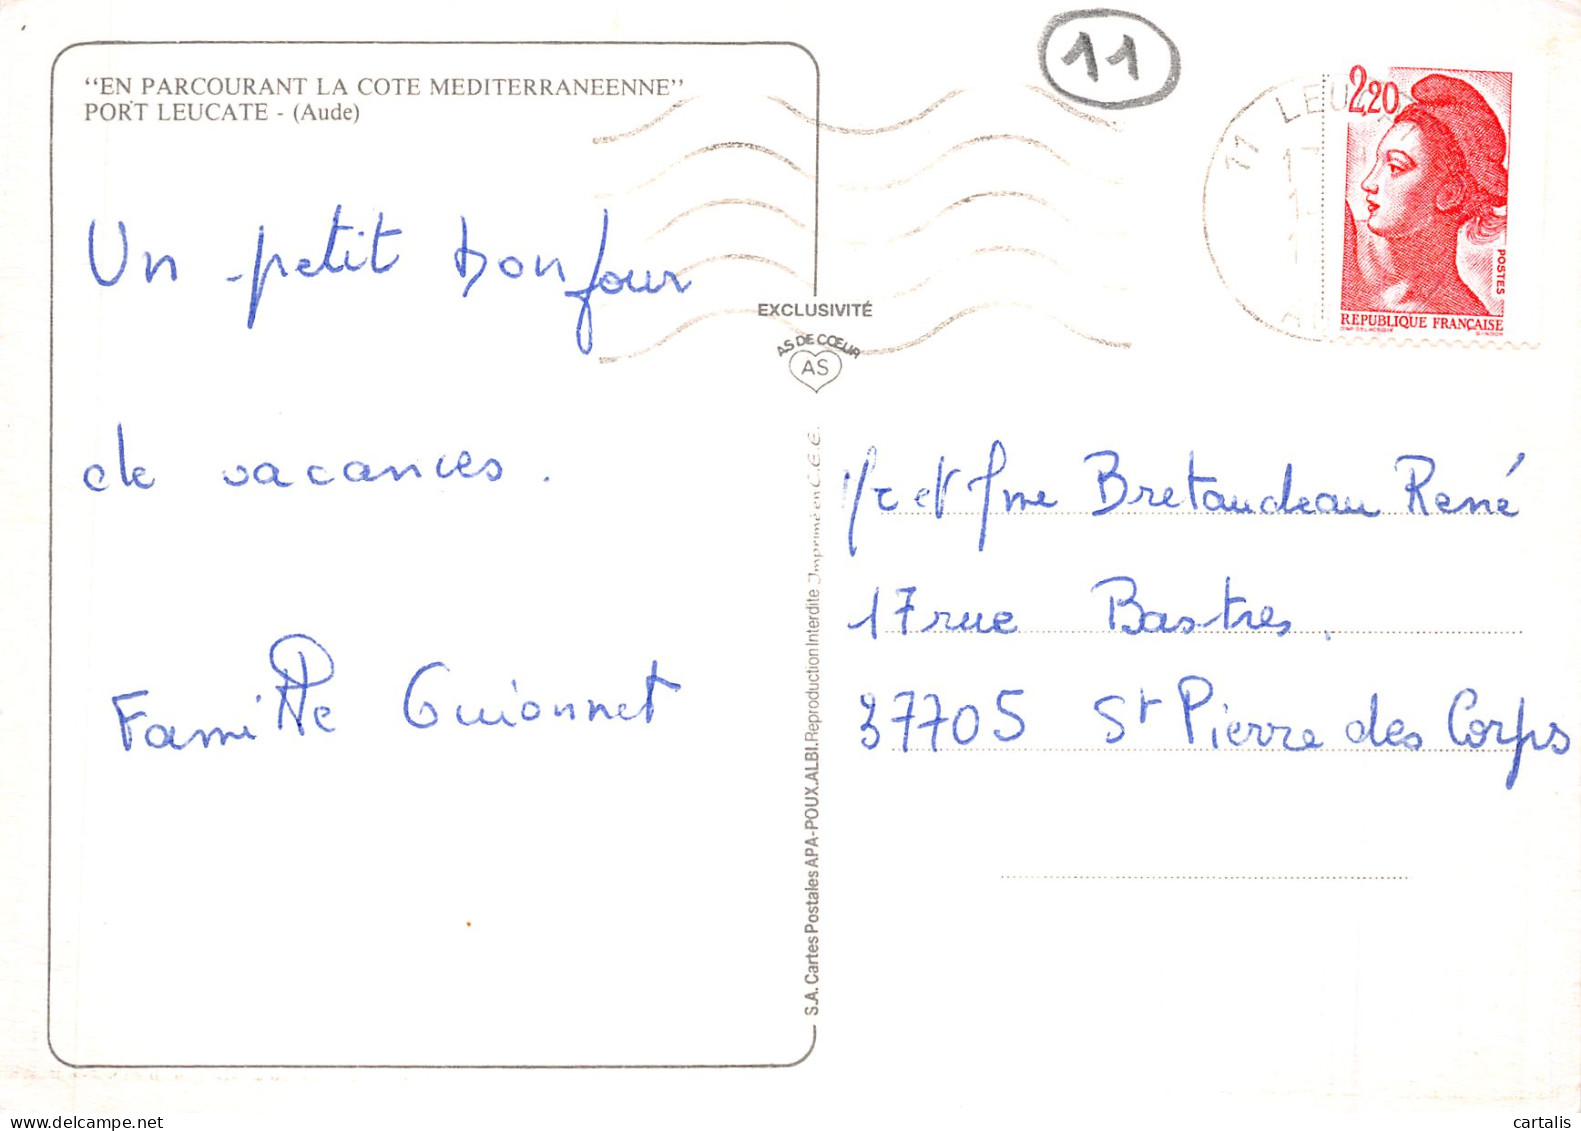 11
"EN PARCOURANT LA COTE MEDITERRANEENNE"
PORT LEUCATE - (Aude)
11 LEUC
17
2,20
POSTES
REPUBLIQUE FRANÇAISE
Un petit bonjour
de vacances.
Famille Guionnet
EXCLUSIVITÉ
AS DE CŒUR
AS
S.A. Cartes Postales APA-POUX.ALBI. Reproduction Interdite Imprimé en C.E.E.
Mr et Mme Bretaudeau René
17 rue Bastres.
37705 St Pierre des Corps
cartalis